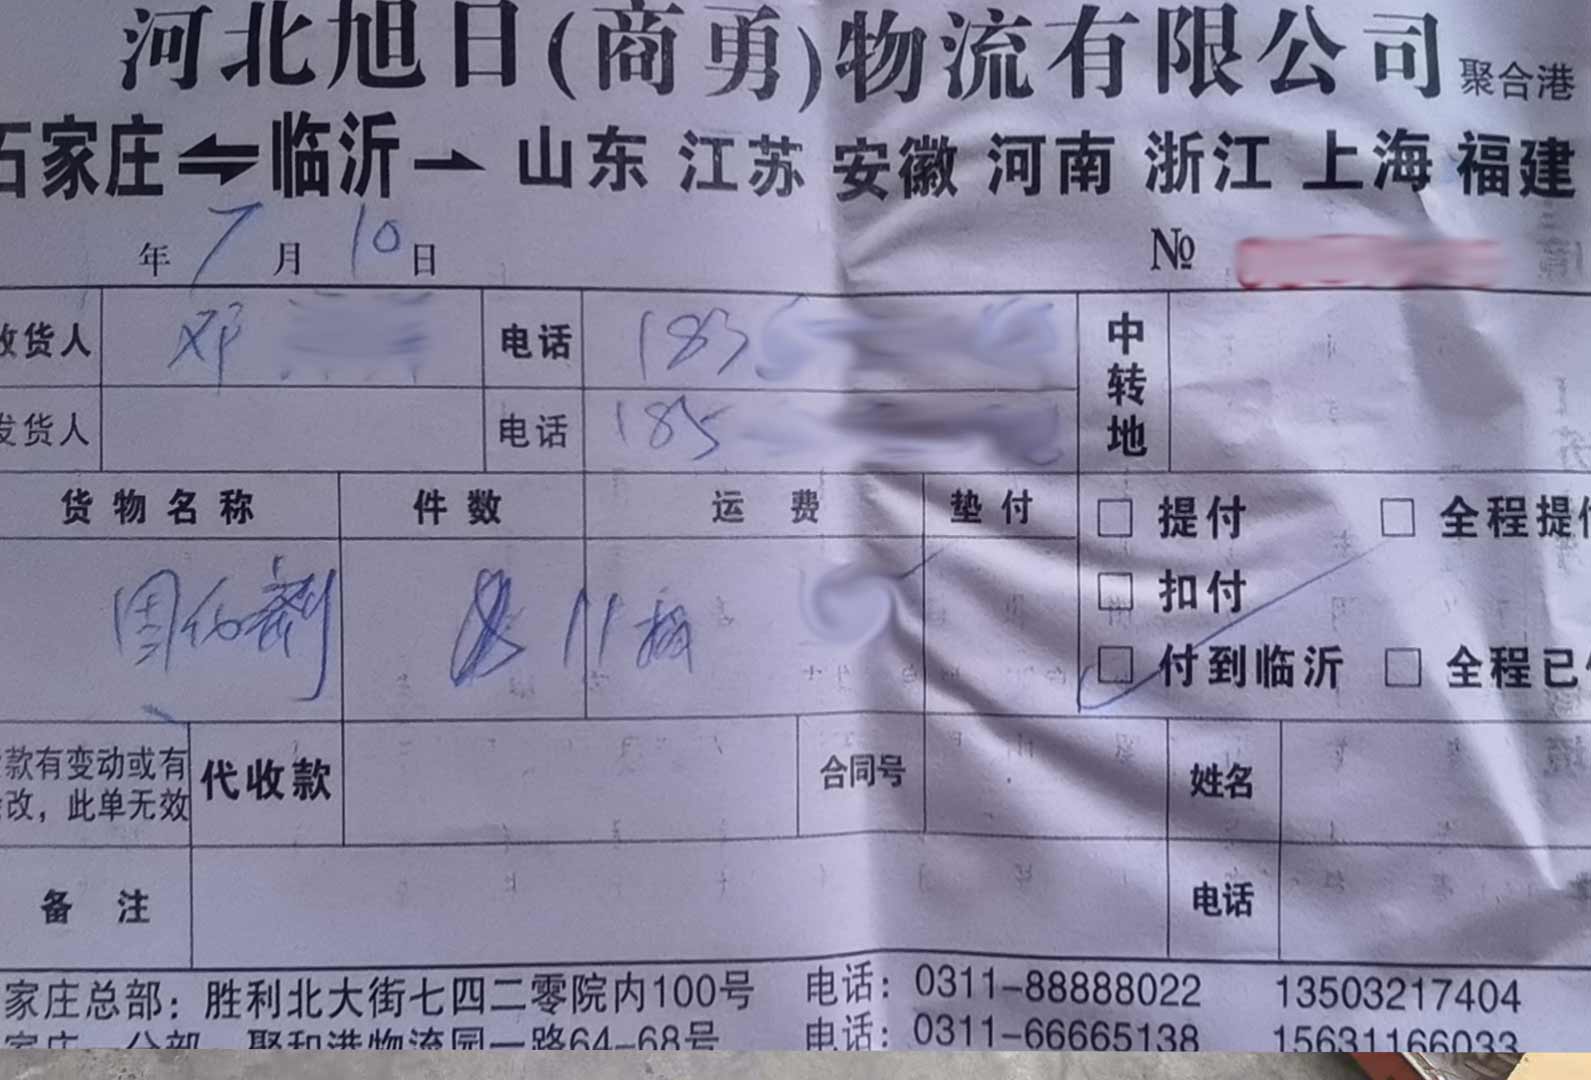 河北旭日(商勇)物流有限公司 聚合港
石家庄⇌临沂→山东 江苏 安徽 河南 浙江 上海 福建
年 7 月 10 日 №
收货人 邓 电话 183 中转地
发货人 电话 185
货物名称 件数 运费 垫付 □ 提付 □ 全程提付
□ 扣付
11
□ 付到临沂 □ 全程已付
款有变动或有 代收款 合同号 姓名
改，此单无效
备注 电话
家庄总部：胜利北大街七四二零院内100号 电话：0311-88888022 13503217404
家庄 分部 聚和港物流园一路64-68号 电话：0311-66665138 15631166033